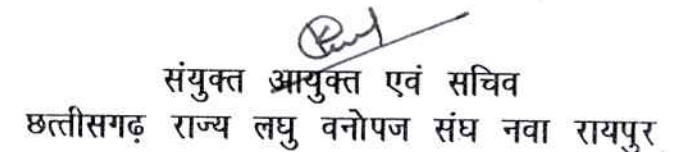 संयुक्त आयुक्त एवं सचिव
छत्तीसगढ़ राज्य लघु वनोपज संघ नवा रायपुर